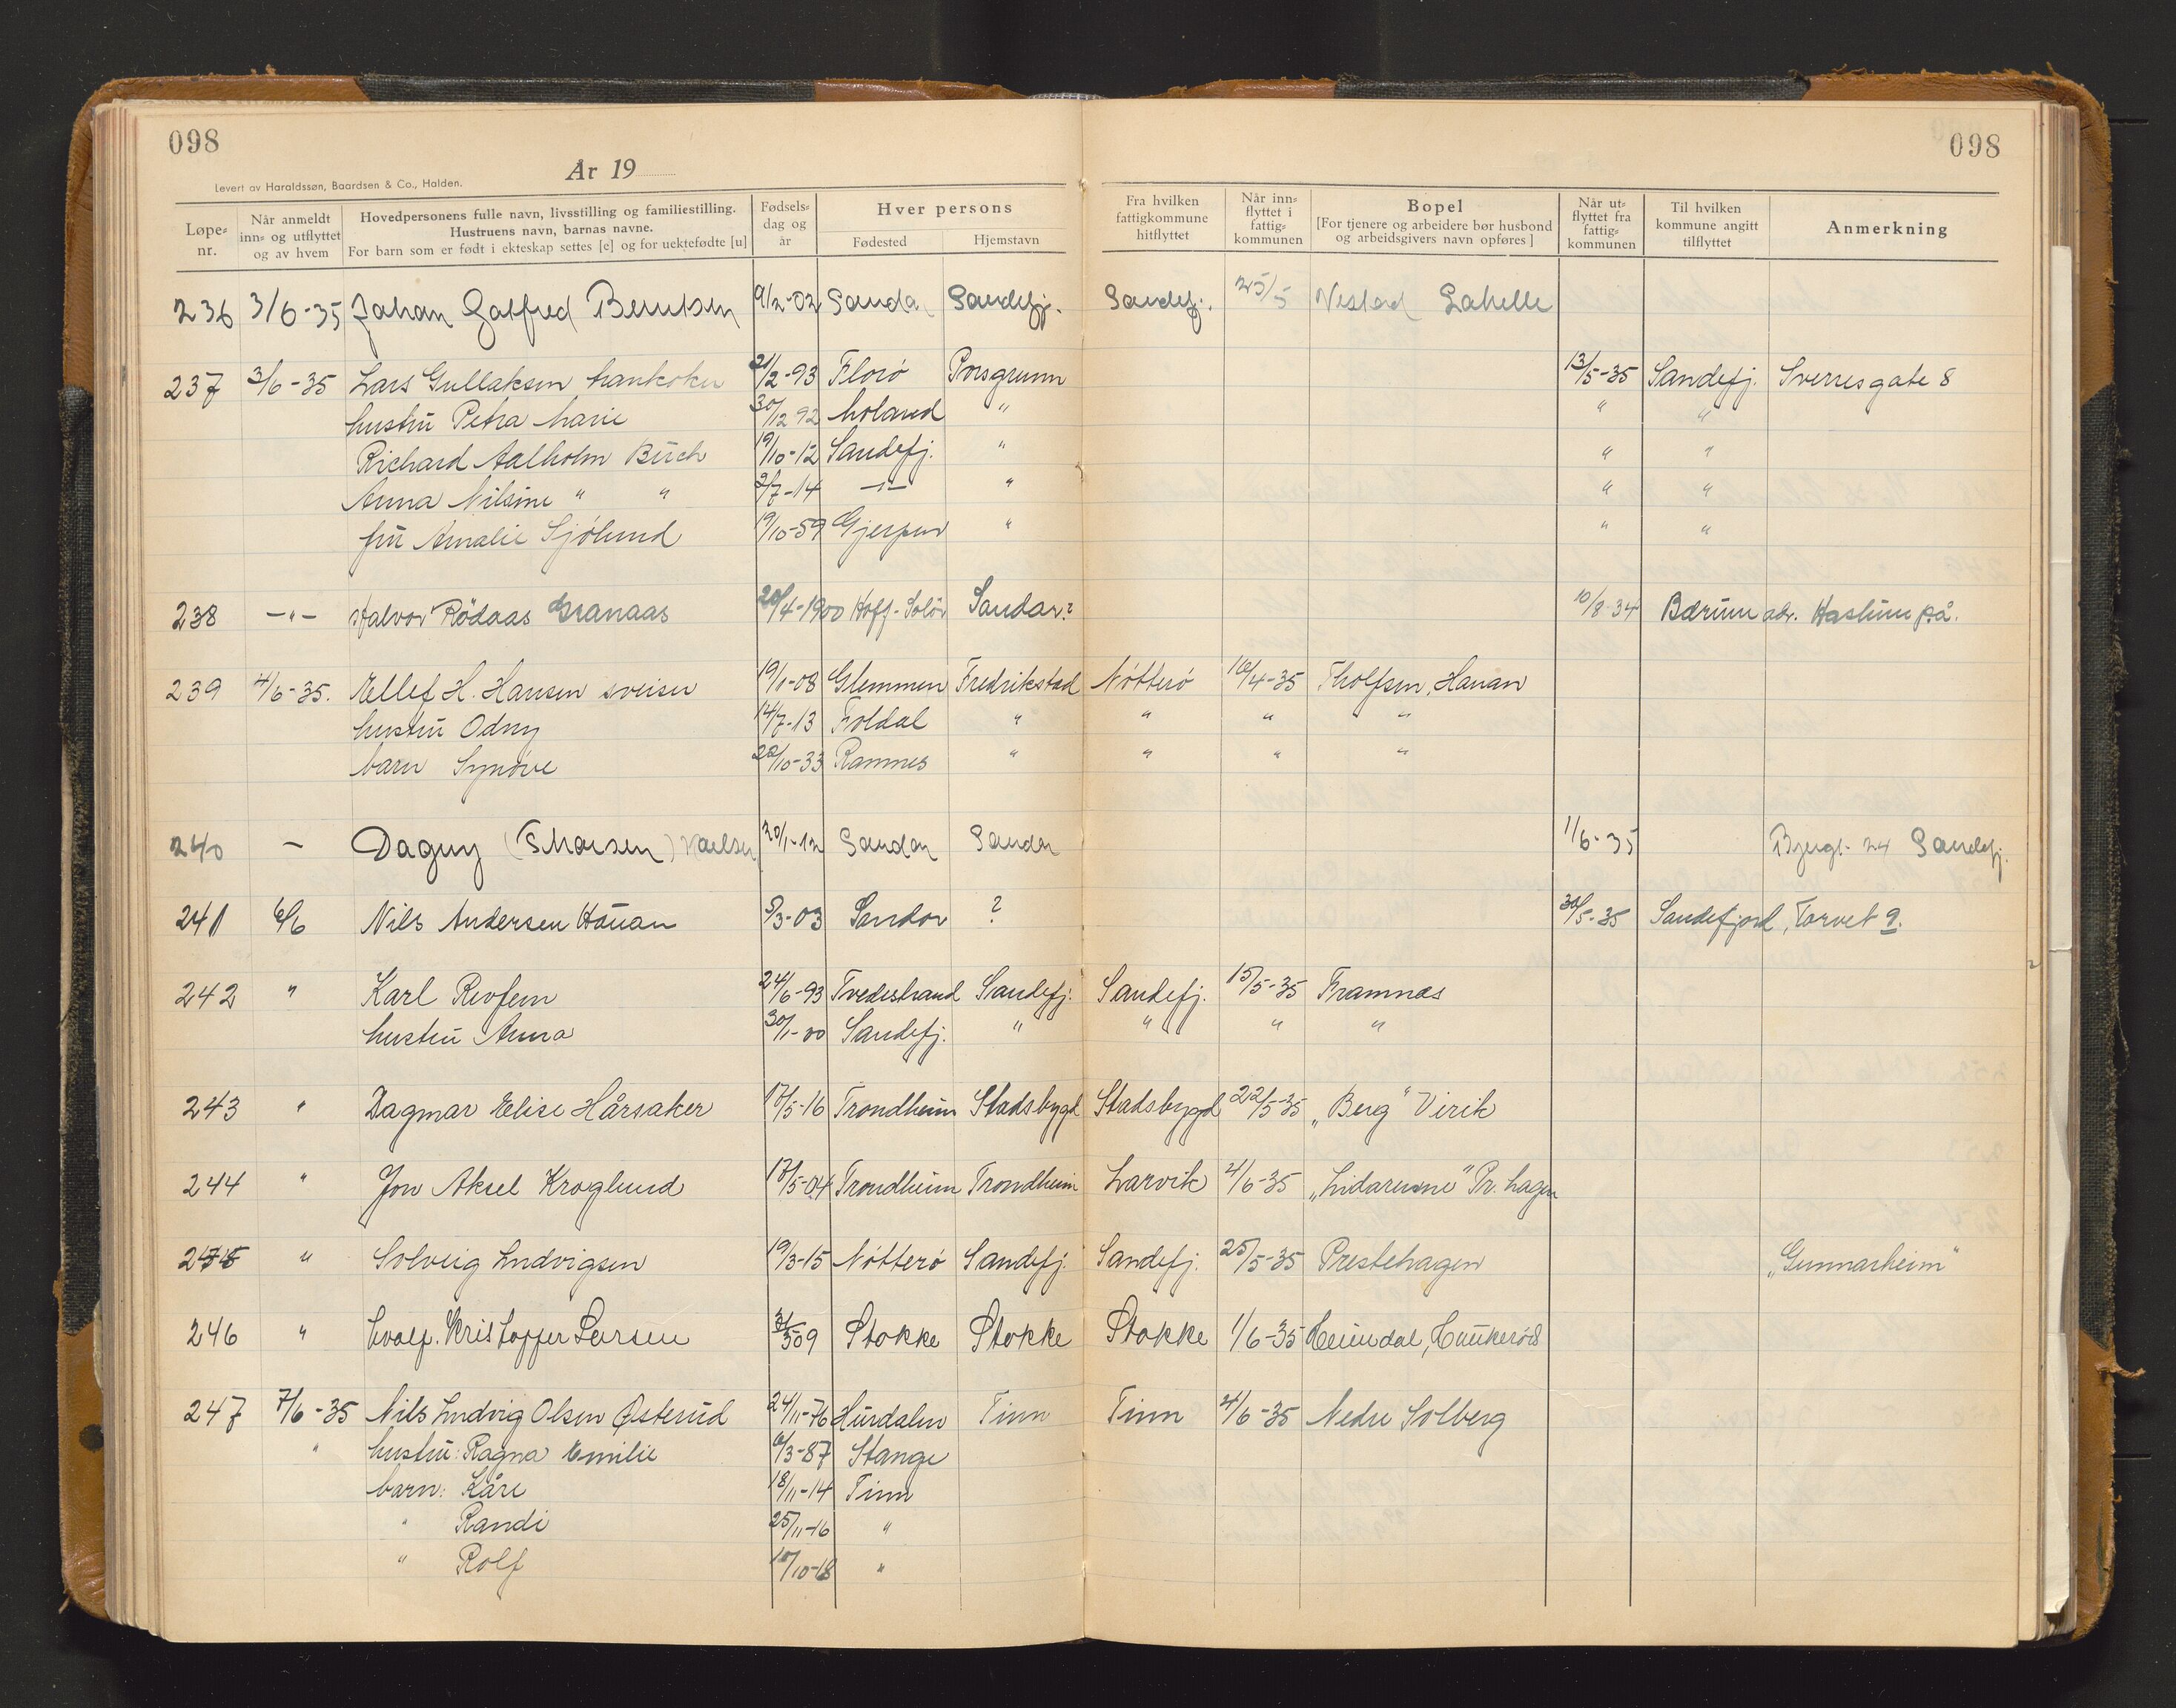 098
098
År 19
Levert av Haraldssøn, Baardsen & Co., Halden.
Løpe-nr. Når anmeldt inn- og utflyttet og av hvem Hovedpersonens fulle navn, livsstilling og familiestilling. Hustruens navn, barnas navne. For barn som er født i ekteskap settes [e] og for uektefødte [u] Fødsels-dag og år Hver persons Fødested Hjemstavn Fra hvilken fattigkommune hitflyttet Når inn-flyttet i fattig-kommunen Bopel [For tjenere og arbeidere bør husbond og arbeidsgivers navn opføres] Når ut-flyttet fra fattig-kommunen Til hvilken kommune angitt tilflyttet Anmerkning
236 3/6-35 Johan Galfred Berntsen 9/2-02 Sandar Sandefj. Sandefj. 25/5 Nestad
237 3/6-35 Lars Gullaksen 21/2-93 Florø Porsgrunn 13/5-35 Sandefj. Sverresgate 8
hustru Petra Marie 30/12 92 Moland " " "
Richard Aalholm Birch 19/10-12 Sandefj. " " "
Anna Nilsine " " 2/7-14 -"- " " "
fru Amalie Sjölund 19/10-59 Gjerpen " " "
238 -"- Halvor Rödaas Granaas 20/4-1900 Hoff-Solör Sandar? 10/8-34 Bærum adr. Haslum på.
239 4/6-35. Ellef H. Hansen sveiser 19/1-08 Glemmen Fredrikstad Nötterö 10/4-35 Tholfsen, Hauan
hustru Odny 14/7-13 Foldal " " " "
barn Synöve 22/10-33 Ramnes " " " "
240 - Dagny (Thorsen) 20/1-12 Sandar Sandar 1/6-35 Bjergt. 24 Sandefj.
241 6/6 Nils Andersen Hauan 5/3-03 Sandar ? 30/5-35 Sandefjord, Torvet 9.
242 " Karl Revfem 24/6-93 Tvedestrand Sandefj. Sandefj. 15/5-35 Framnæs
hustru Anna 30/1-00 Sandefj. " " " "
243 " Dagmar Elise Hårsaker 17/5-16 Trondheim Stadsbygd Stadsbygd 22/5-35 „Berg" Virik
244 " Jon Aksel Kroglund 17/5-04 Trondheim Trondheim Larvik 4/6-35 „Lidarenne" Pr. hagen
245 " Solveig Ludvigsen 19/3-15 Nötterö Sandefj. Sandefj. 25/5-35 Prestehagen „Gunnarheim"
246 " Kristoffer Larsen 09 Stokke Stokke Stokke 1/6-35 Heimdal, Haukeröd
247 7/6-35 Nils Ludvig Olsen Østerud 24/11-76 Hurdalen Tinn Tinn 4/6-35 Nedre Solberg
" hustru: Ragna Emilie 6/3-87 Stange
barn: Kåre 18/11-14 Tinn
" Randi 25/11-16 "
" Rolf 10/10-18 "